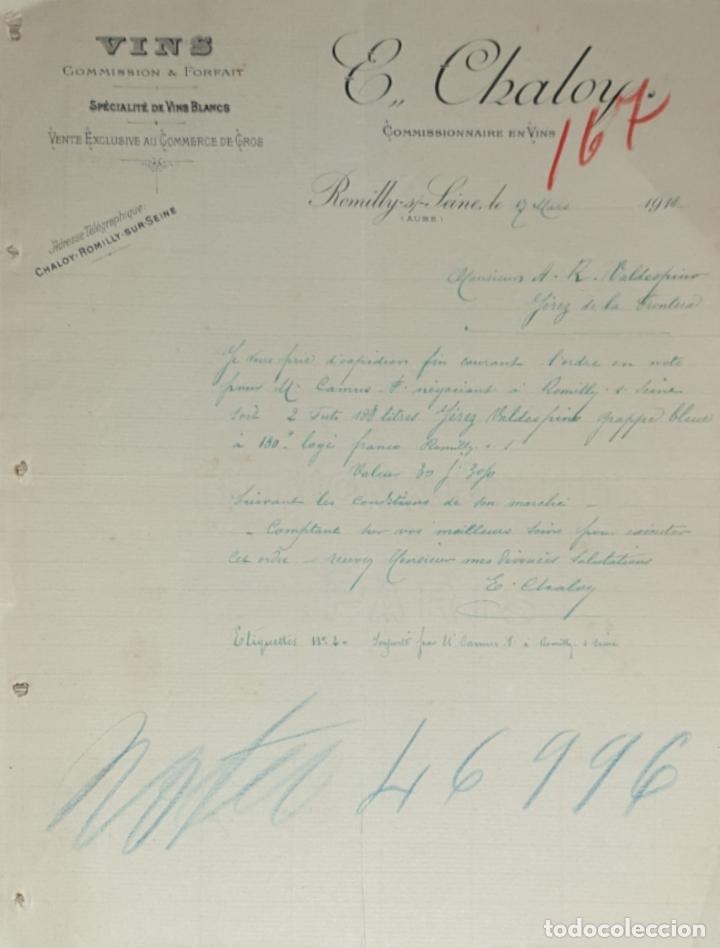 VINS
COMMISSION & FORFAIT
SPÉCIALITÉ DE VINS BLANCS
VENTE EXCLUSIVE AU COMMERCE DE GROS
Adresse Télégraphique:
CHALOY-ROMILLY-SUR-SEINE
E. Chaloy.
COMMISSIONNAIRE EN VINS
167
Romilly-s/-Seine, le Mars 191
(AUBE)
Monsieur A. R. Valdespino
Jérez de la Frontera
Je vous prie d'expédier fin courant l'ordre en note
pour M. Camus F. négociant à Romilly s Seine
Soit 2 Futs litres Jérez Valdespino grappe bleue
à logé franco Romilly s/
Valeur 30 j. 3%
Suivant les conditions de son marché -
- Comptant sur vos meilleurs soins pour exécuter
cet ordre - recevez Monsieur mes salutations
E. Chaloy
Etiquettes par M Camus F. à Romilly s Seine
46996
todocoleccion.net